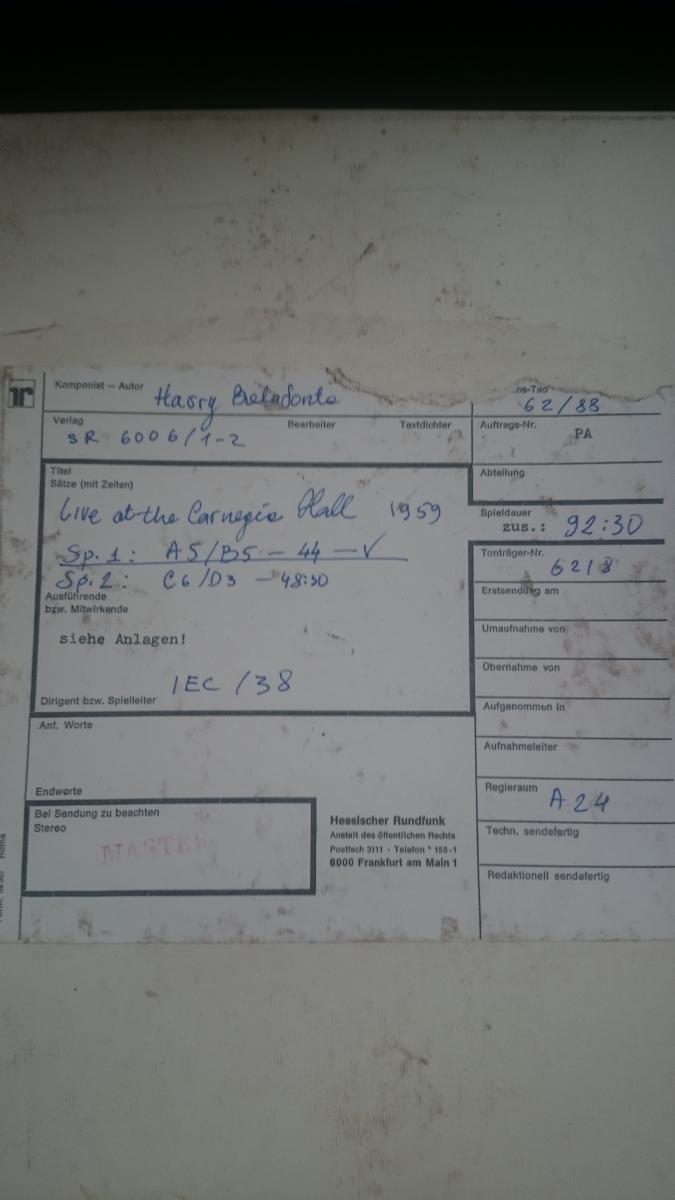 Komponist – Autor Harry Belafonte
ne-Tag
62/88
Verlag Bearbeiter Textdichter
SR 6006/1-2
Auftrags-Nr.
PA
Titel
Sätze (mit Zeiten)
Live at the Carnegie Hall 1959
Sp. 1: A5/B5 – 44 – √
Sp. 2: C6/D3 – 48:30
Ausführende
bzw. Mitwirkende
siehe Anlagen!
IEC /38
Dirigent bzw. Spielleiter
Abteilung
Spieldauer
zus.: 92:30
Tonträger-Nr.
62/8
Erstsendung am
Umaufnahme von
Übernahme von
Aufgenommen in
Aufnahmeleiter
Regieraum
A 24
Techn. sendefertig
Redaktionell sendefertig
Anf. Worte
Endworte
Bei Sendung zu beachten
Stereo
MASTER
Hessischer Rundfunk
Anstalt des öffentlichen Rechts
Postfach 3111 · Telefon * 155-1
6000 Frankfurt am Main 1